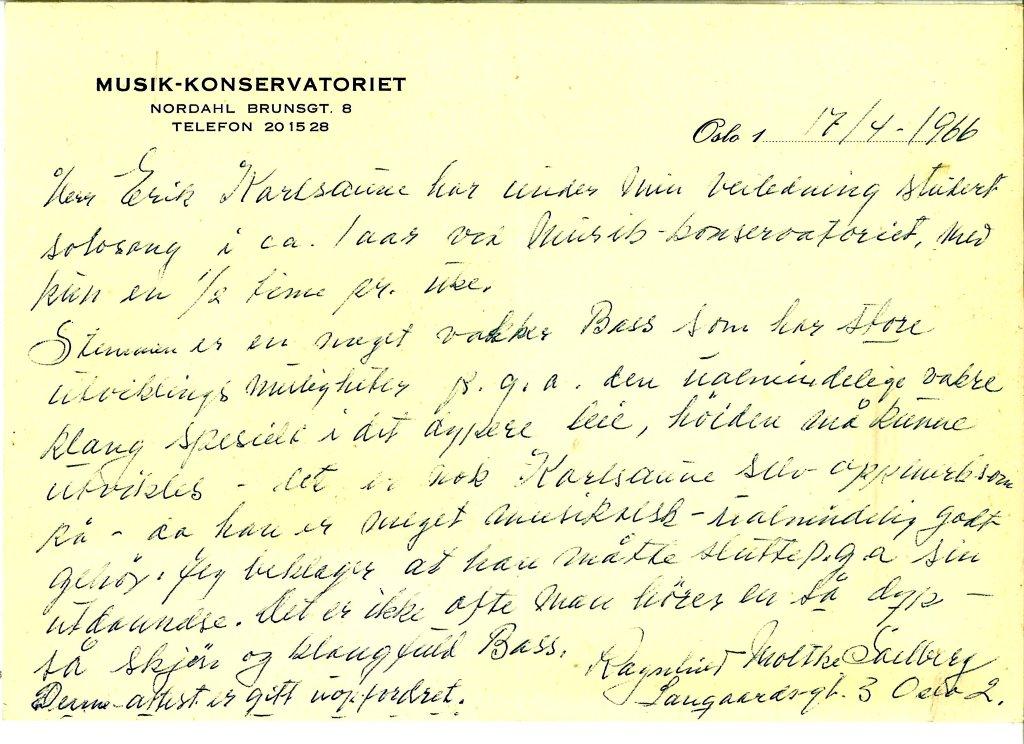 MUSIK-KONSERVATORIET
NORDAHL BRUNSGT. 8
TELEFON 20 15 28
Oslo 1 17/4-1966
Herr Erik Karlsaune har under min veiledning studert
solosang i ca. 1 aar ved Musik-konservatoriet, med
kun en 1/2 time pr. uke.
Stemmen er en meget vakker Bass som har store
utviklings muligheter p.g.a. den ualmindelige vakre
klang spesielt i det dypere leie, höiden må kunne
utvikles - det er nok Karlsaune selv oppmerksom
på - da han er meget musikalsk - ualmindelig godt
gehör. Jeg beklager at han måtte slutte p.g.a sin
utdannelse. Det er ikke ofte man hörer en så dyp -
så skjön og klangfuld Bass.
Ragnhild Moltke Sælberg
Denne attest er gitt uopfordret.
Langaardsgt. 3 Oslo 2.